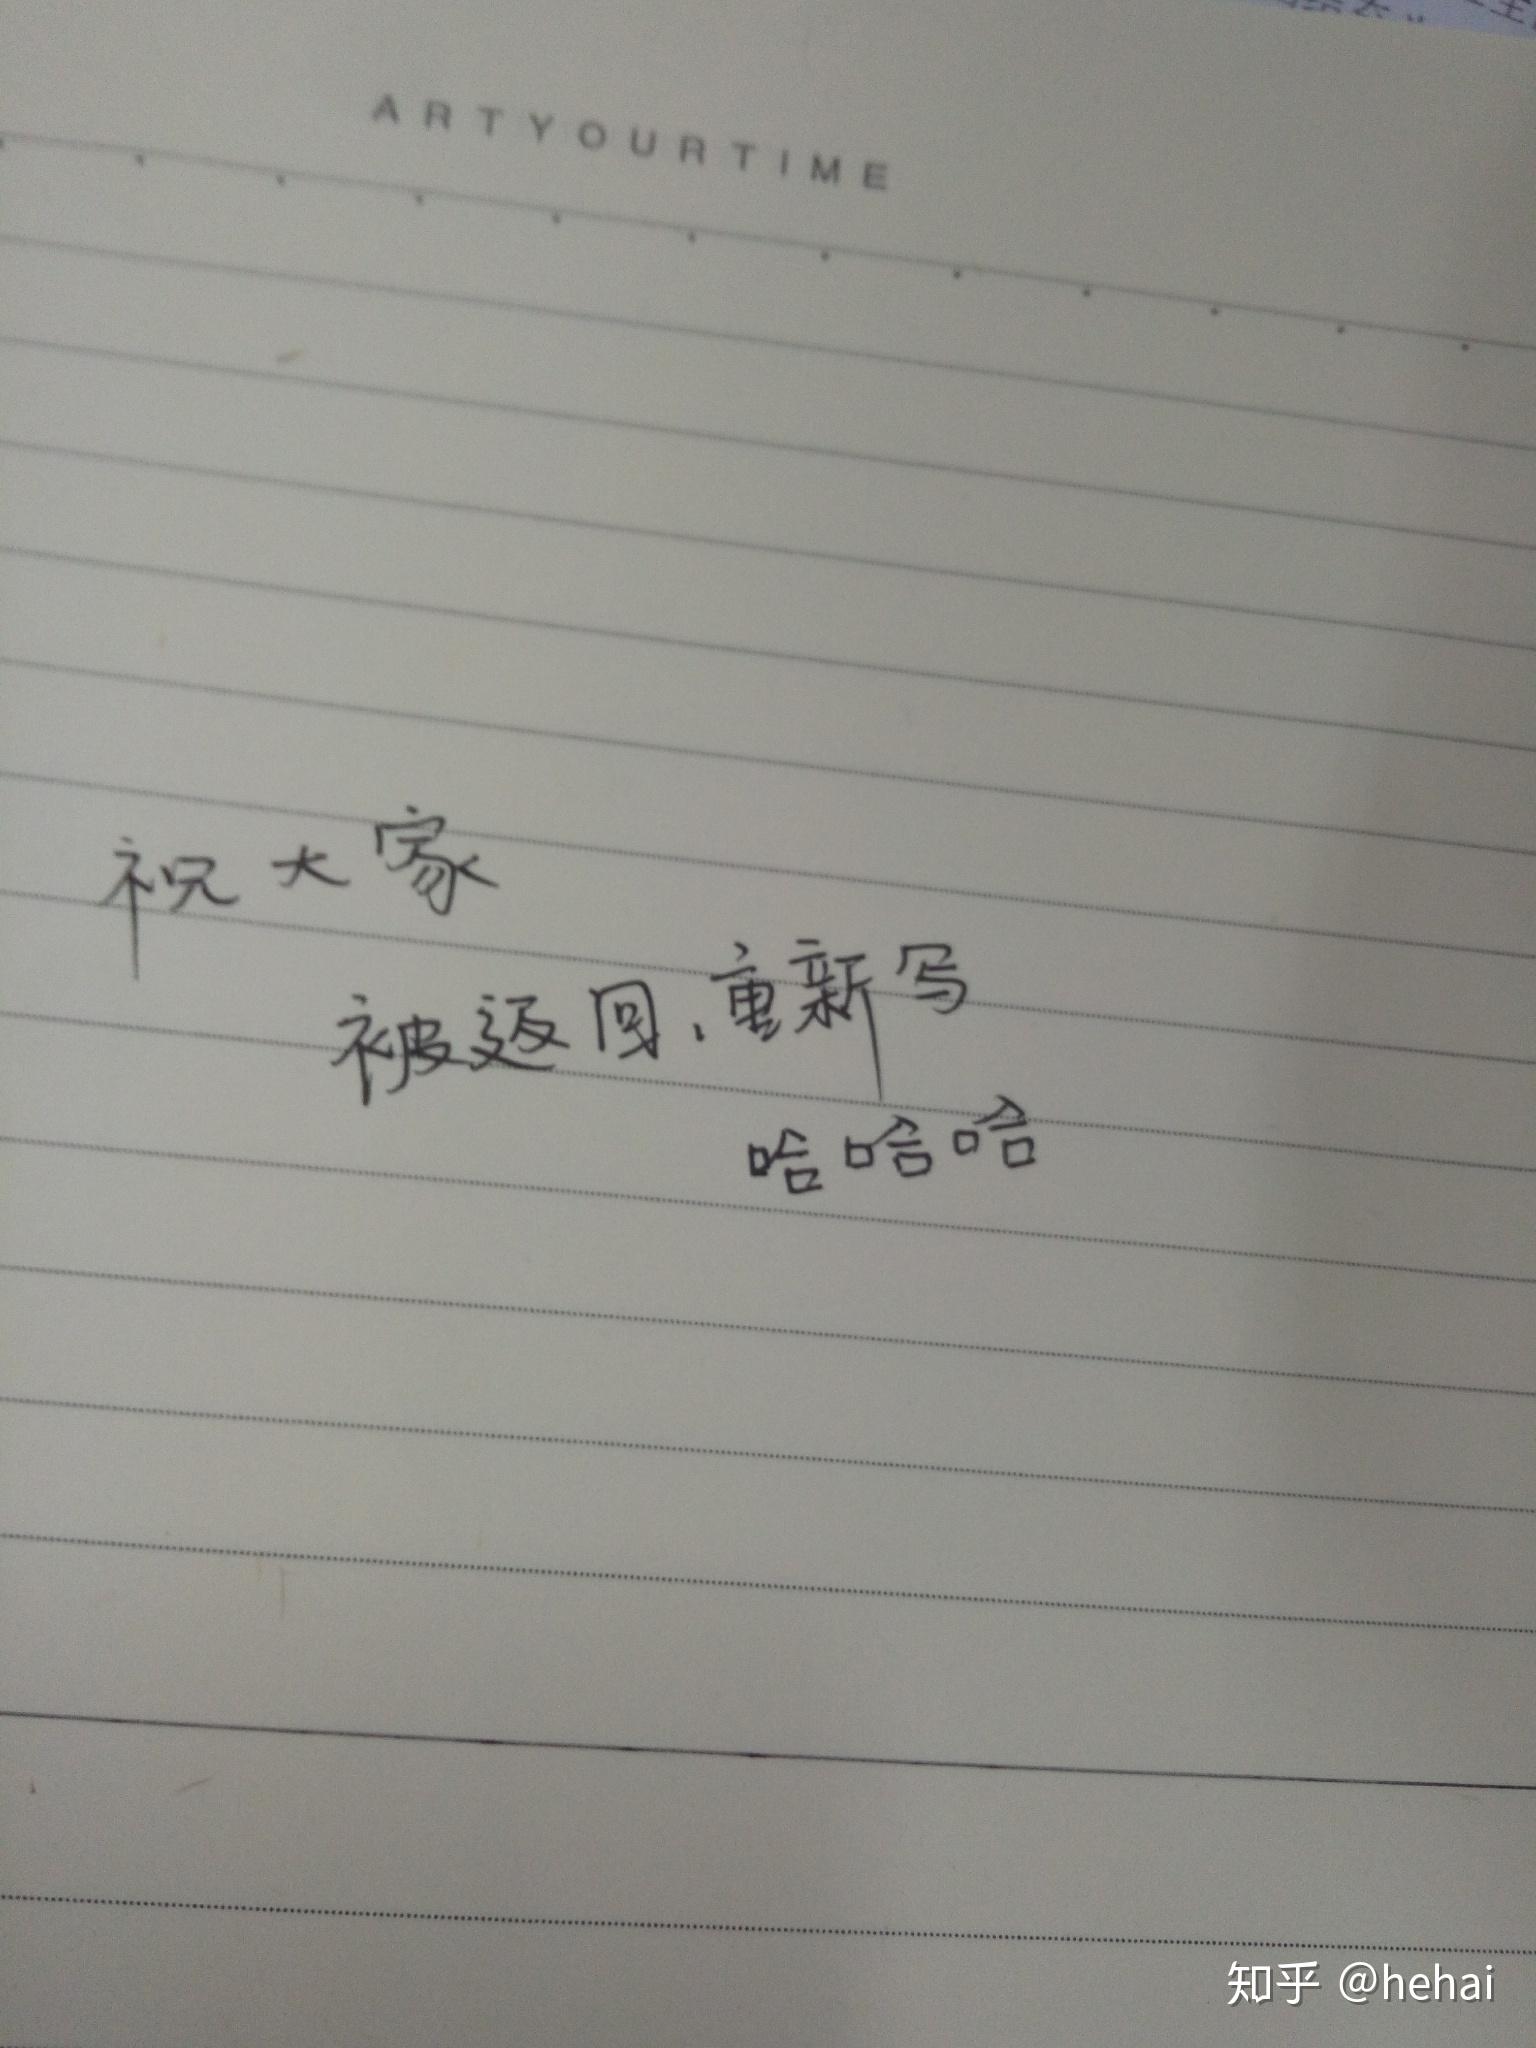 ARTYOURTIME
祝大家
被返回、重新写
哈哈哈
知乎 @hehai